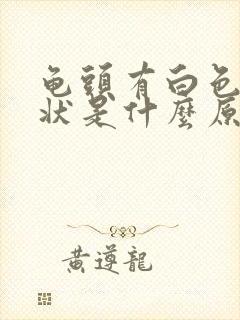 龟頭有白色
狀是什麼原
黄遵龍